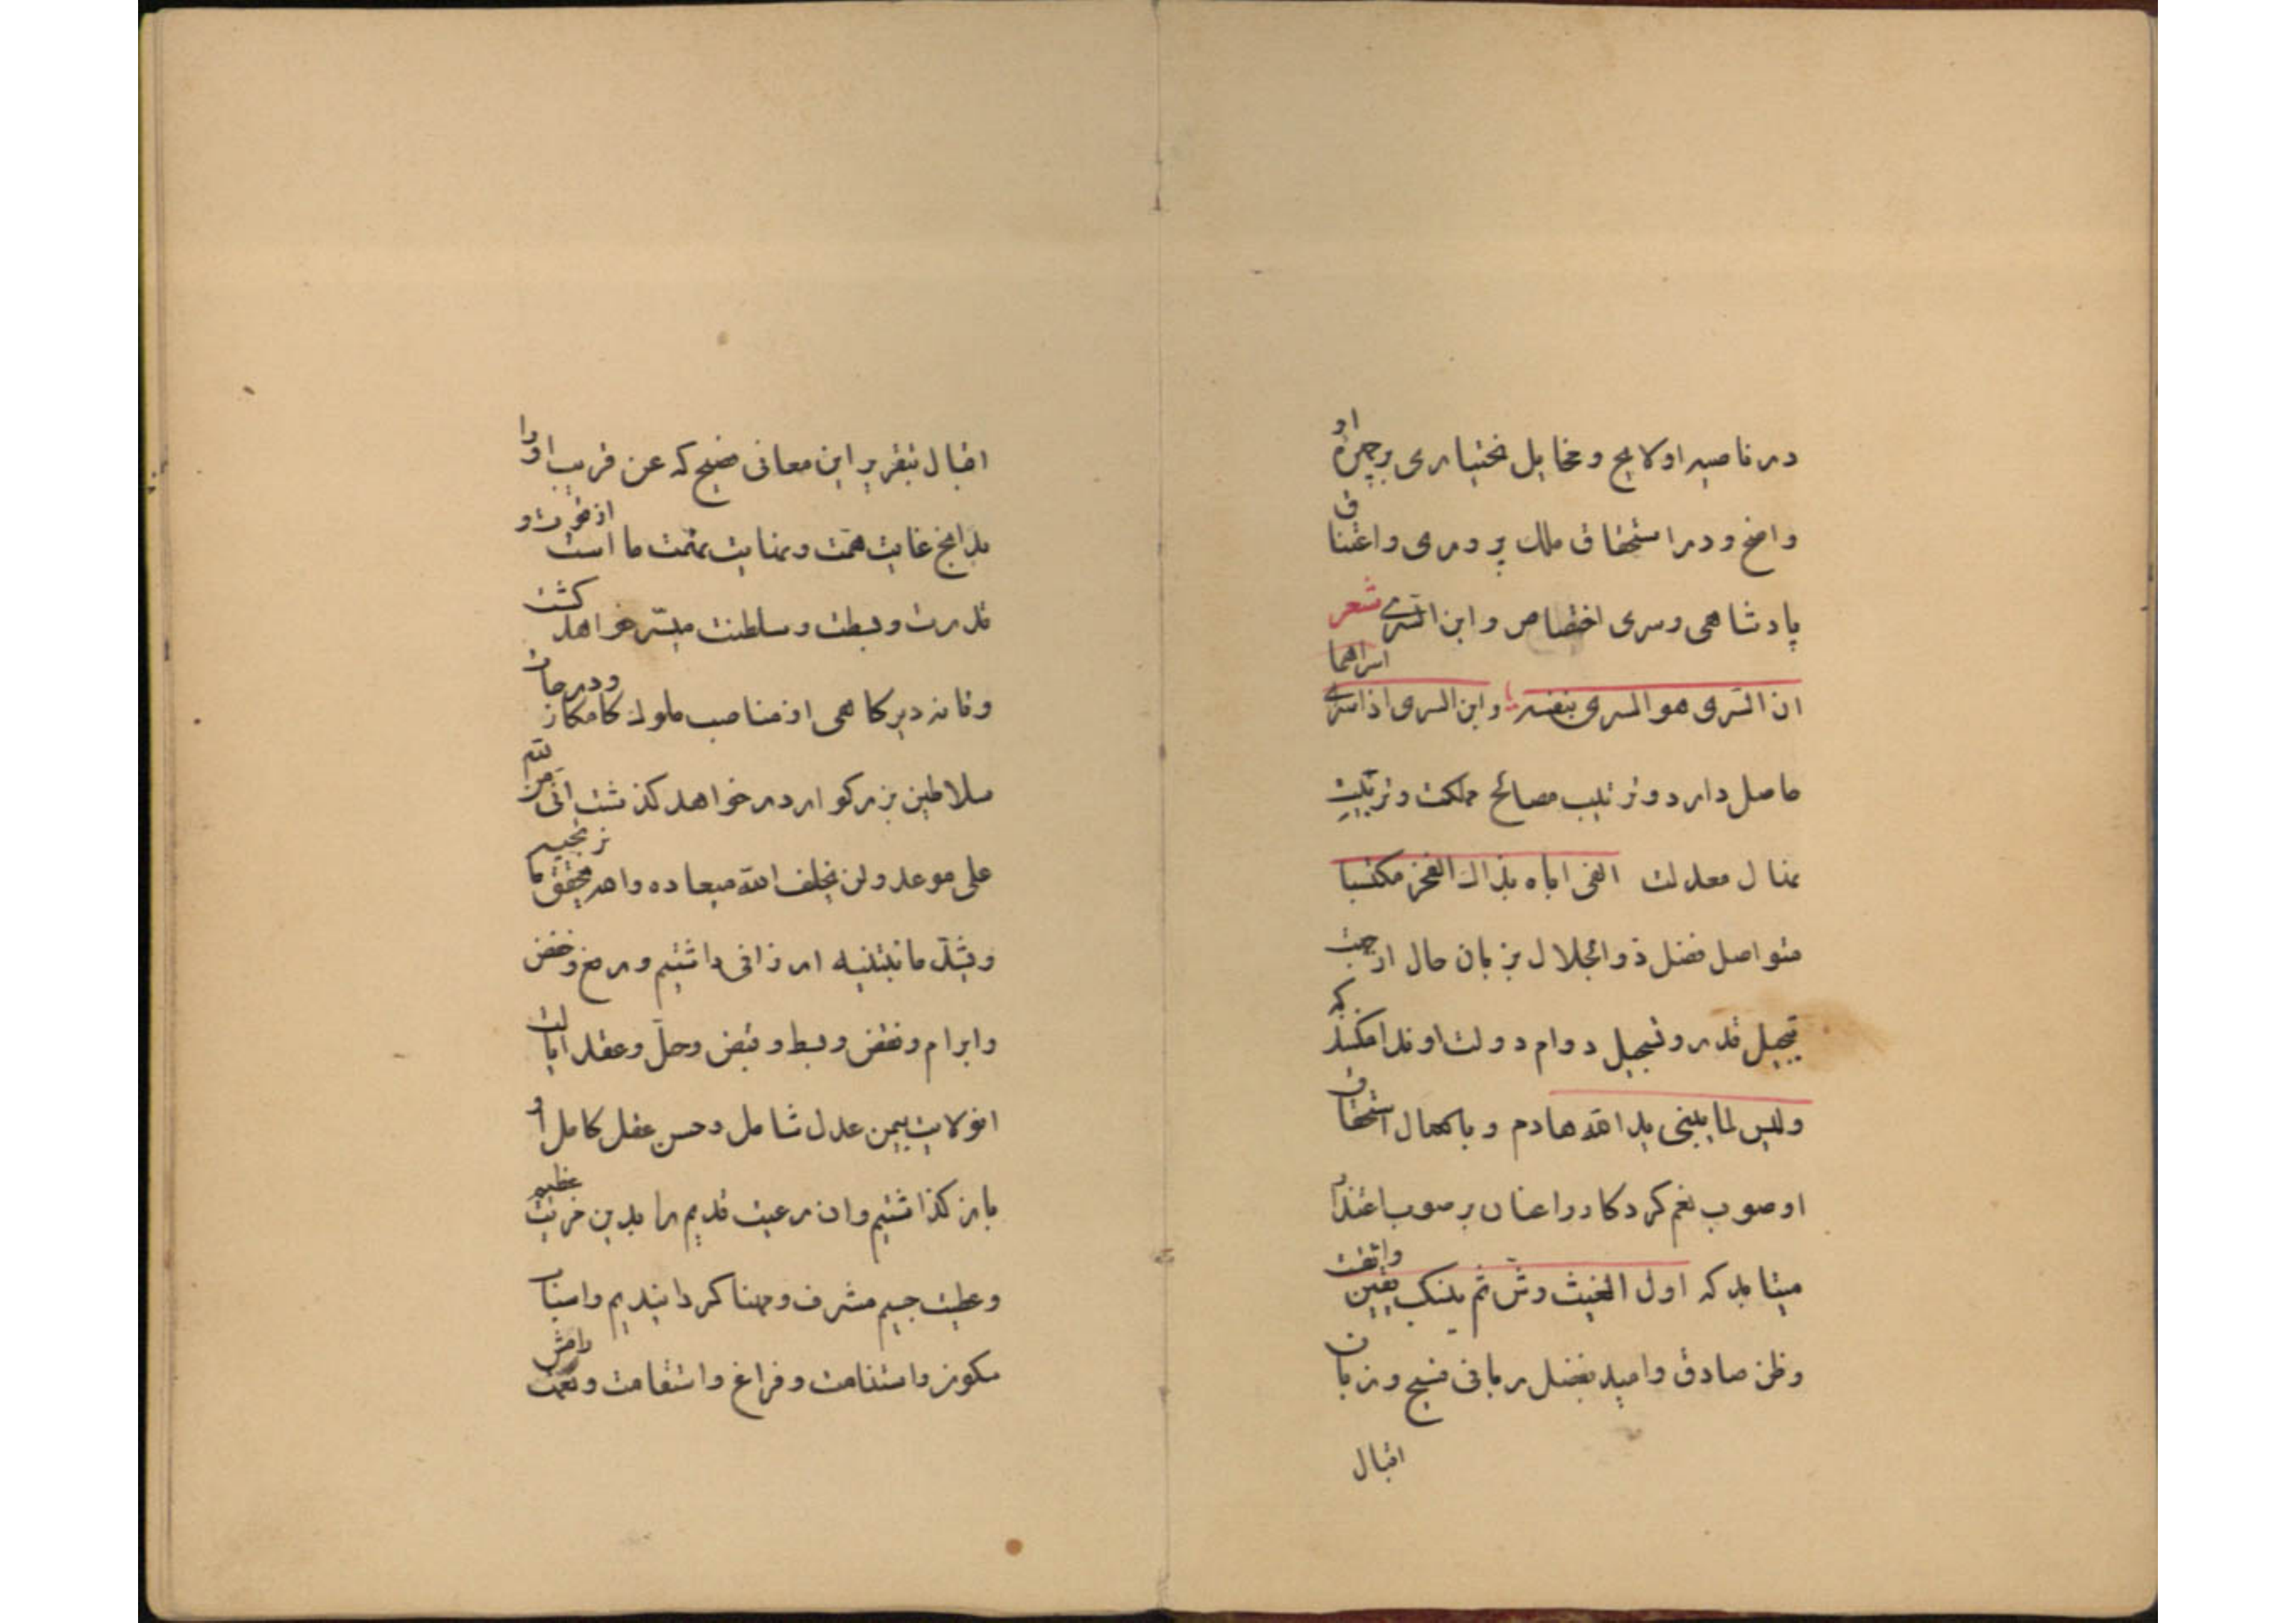 در ناصیه او لایح و مخایل بختیاری بر چهره او
واضح و در استحقاق ملک پروری و اعتناق
پادشاهی و سری اختصاص و ابن السری شعر
ان السری هو السری بنفسه وابن السری اذا سری اسراهما
حاصل دارد و ترتیب مصالح مملکت و تربیت
منال معدلت الفی اباه بذاک الفخر مکتسبا
متواصل فضل ذوالجلال بزبان حال از جهت
تبجیل قدر و تسجیل دوام دولت او ندا میکند که
ولیس لما یبنی ید الله هادم و باکمال استحقاق
او صوب نعم کردکار و را عنان بر صوب اعتذار
میتابد که اول الغیث رش ثم ینسکب یقین واثقت
وظن صادق و امید بفضل ربانی فسیح و زبان
اقبال
اقبال بتقریر این معانی فصیح که عن قریب او را
بدانچ غایت همت و نهایت نهمت ما است از قوت و
قدرت و بسطت و سلطنت میسر خواهد کشت
و قاعده دیرکاهی از مناصب ملوک کامکار و درجات
سلاطین بزرکوار در خواهد کذشت انی من لله
علی موعد ولن یخلف الله میعاده واهر محقق ما
و بتبدل ما بتنبیه ارزانی داشتیم و رفع و خفض
و ابرام و نقض و بسط و قبض و حل و عقد ایالت
انولایت بیمن عدل شامل و حسن عقل کامل او
باز کذاشتیم و ان رعیت قدیم را بدین مزیت عظیم
و عطیت جسیم مشرف و مهنا کردانیدیم و اسباب
سکون و استنامت و فراغ و استقامت و نعمت رامش